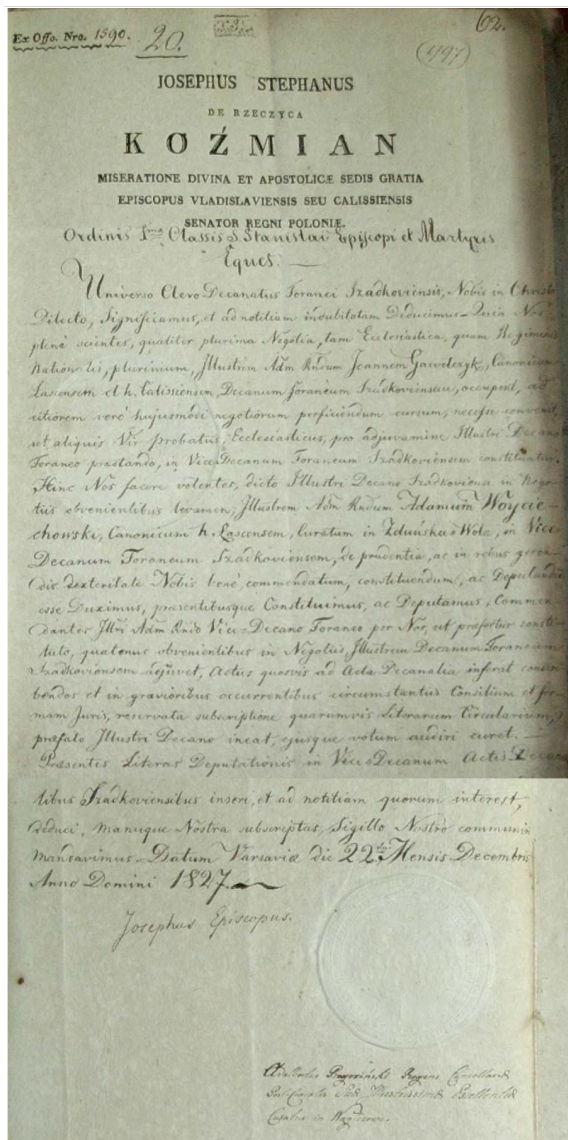 Ex Offo. Nro. 1590.
20.
62.
(497)
JOSEPHUS STEPHANUS
DE RZECZYCA
KOŹMIAN
MISERATIONE DIVINA ET APOSTOLICÆ SEDIS GRATIA
EPISCOPUS VLADISLAVIENSIS SEU CALISSIENSIS
SENATOR REGNI POLONIÆ.
Ordinis I mæ Classis S. Stanislai Episcopi et Martyris
Eques.
Universo Clero Decanatus Foranei Szadkoviensis, Nobis in Christo
Dilecto, Significamus, et ad notitiam indubitatam Deducimus. Quia Nos
plenè scientes, qualiter plurima Negotia, tam Ecclesiastica, quam Regiminis
Nationalis, plurimum, Illustrem Adm Rndum Joannem Gawelczyk, Canonicum
Lascensem et h. Calissiensem, Decanum foraneum Szadkoviensem, occupent, ad
citiorem verò hujusmodi negotiorum perficiendum cursum, necesse convenit,
ut aliquis Vir probatus, Ecclesiasticus, pro adjuvamine Illustri Decano
Foraneo praestando, in Vice-Decanum Foraneum Szadkoviensem constituatur.
Hinc Nos facere volentes, dicto Illustri Decano Szadkoviensi in Nego-
tiis obvenientibus levamen, Illustrem Adm Rndum Adamum Woycie-
chowski, Canonicum h. Lascensem, Curatum in Zduńska Wola, in Vice
Decanum Foraneum Szadkoviensem, de prudentia, ac in rebus geren-
dis dexteritate Nobis benè commendatum, constituendum, ac Deputandum
esse Duximus, praesentibusque Constituimus, ac Deputamus, Commen-
dantes Illmi Adm Rndo Vice-Decano Foraneo per Nos, ut praefertur consti-
tuto, quatenus obvenientibus in Negotiis, Illustrem Decanum Foraneum
Szadkoviensem adjuvet, Actus quosvis ad Acta Decanalia inferat conscri-
bendos et in gravioribus occurrentibus circumstantiis Consilium et for-
mam Juris, reservata subscriptione quarumvis Literarum Circularium,
praefato Illustri Decano ineat, ejusque votum audiri curet.
Praesentes Literas Deputationis in Vice-Decanum Actis Decana-
libus Szadkoviensibus inseri, et ad notitiam quorum interest,
deduci, manuque Nostra subscriptas, Sigillo Nostro communiri
mandavimus. Datum Varsaviæ die 22 Mensis Decembris
Anno Domini 1827.
Josephus Episcopus.
Regens Cancellariæ